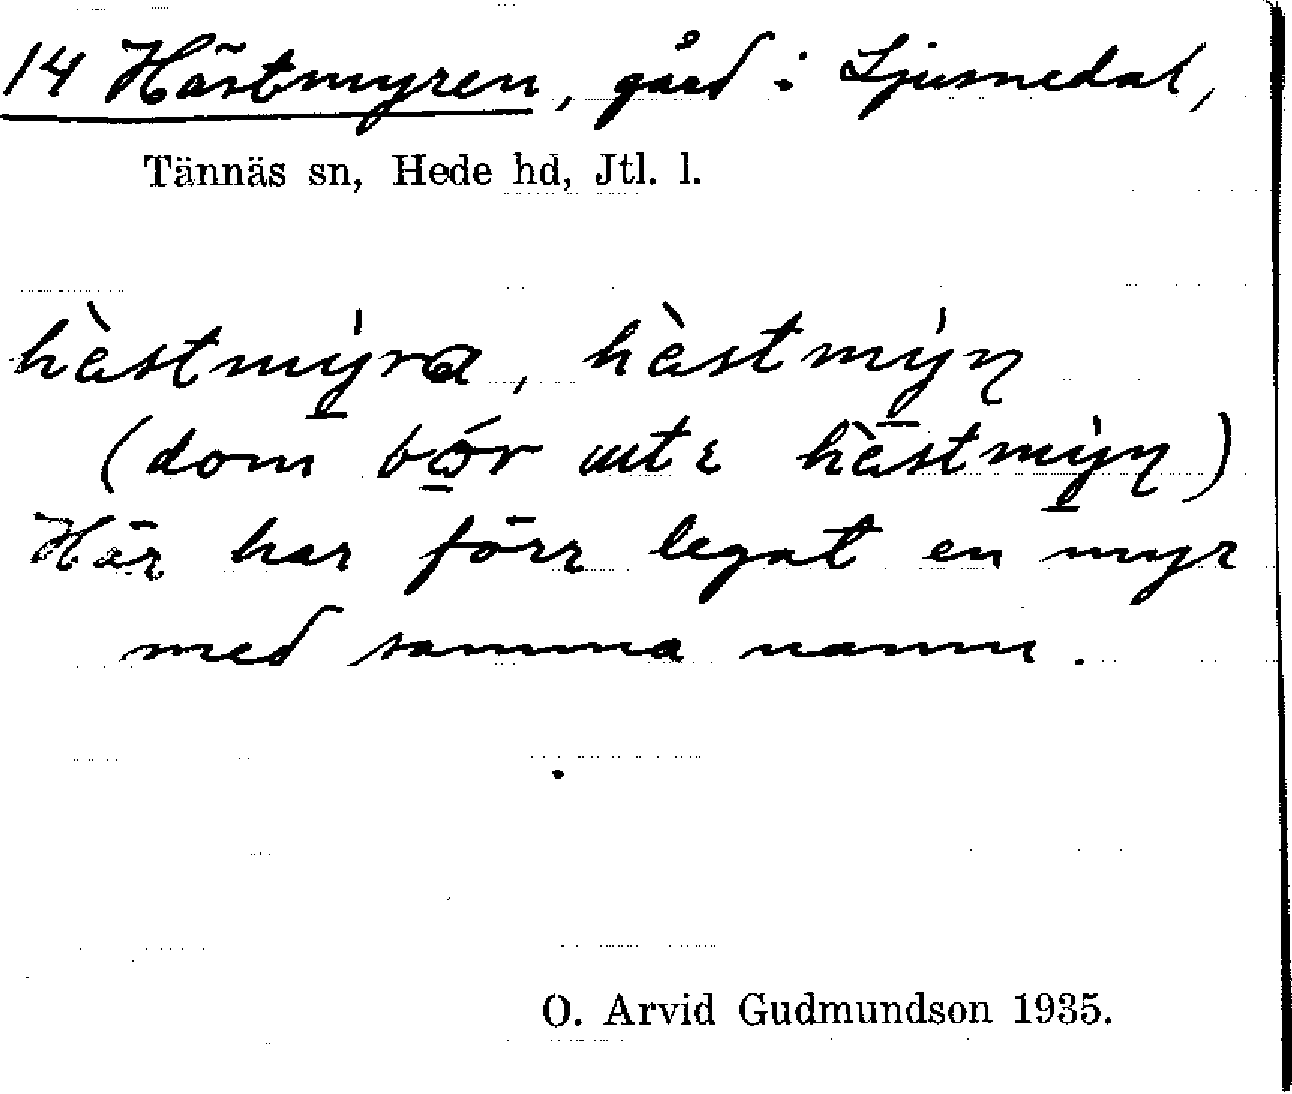 14 Hästmyren, gård i Ljusnedal,
Tännäs sn, Hede hd, Jtl. l.
hàstmý̱ra, hàstmý̱n
(dom bo̱r hàstmý̱n)
Här har förr legat en myr
med samma namn.
O. Arvid Gudmundson 1935.